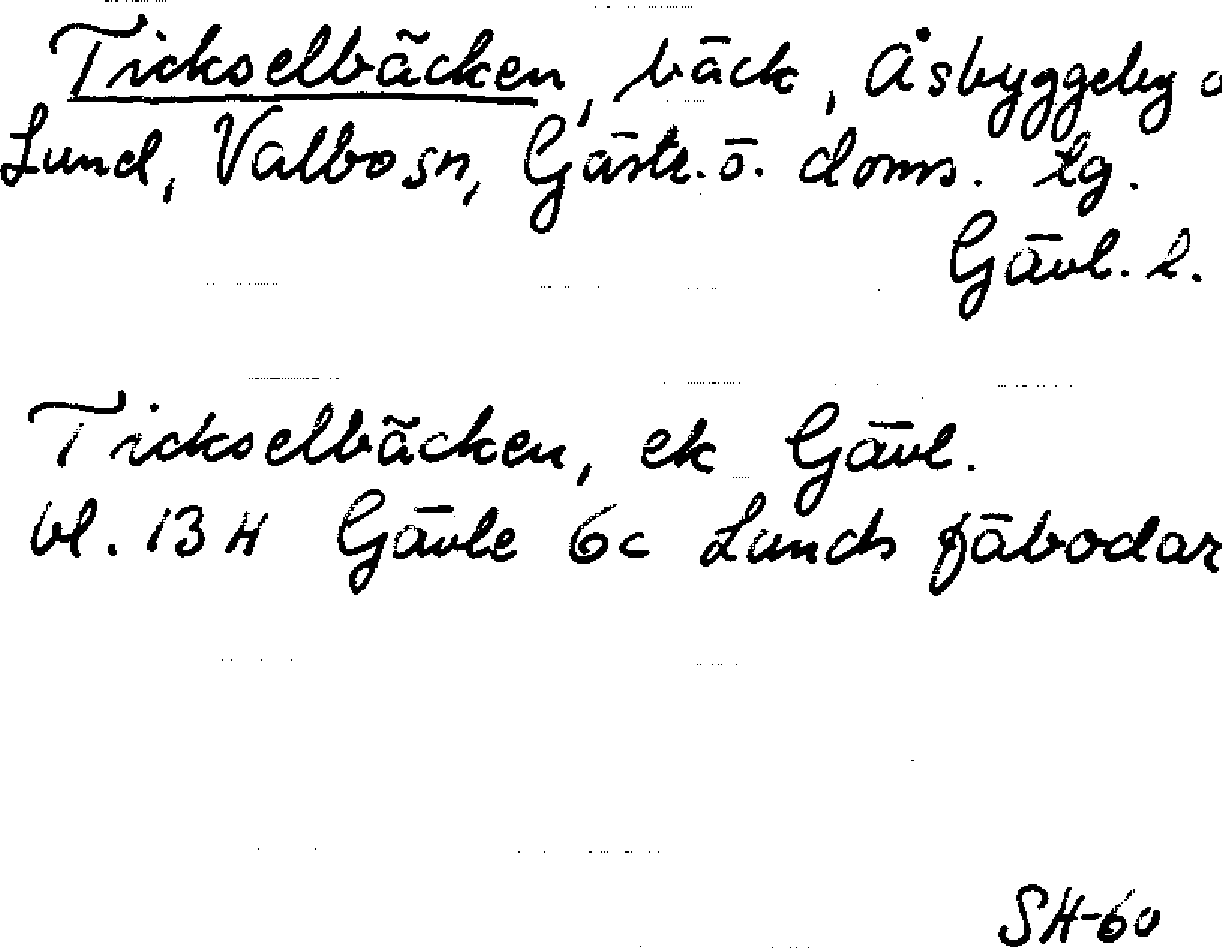 Tickselbäcken, bäck, Åsbyggeby o
Lund, Valbo sn, Gästr. ö. doms. tg.
Gävl. l.
Tickselbäcken, ek Gävl.
bl. 13 H Gävle 6c Lunds fäbodar
SH-60